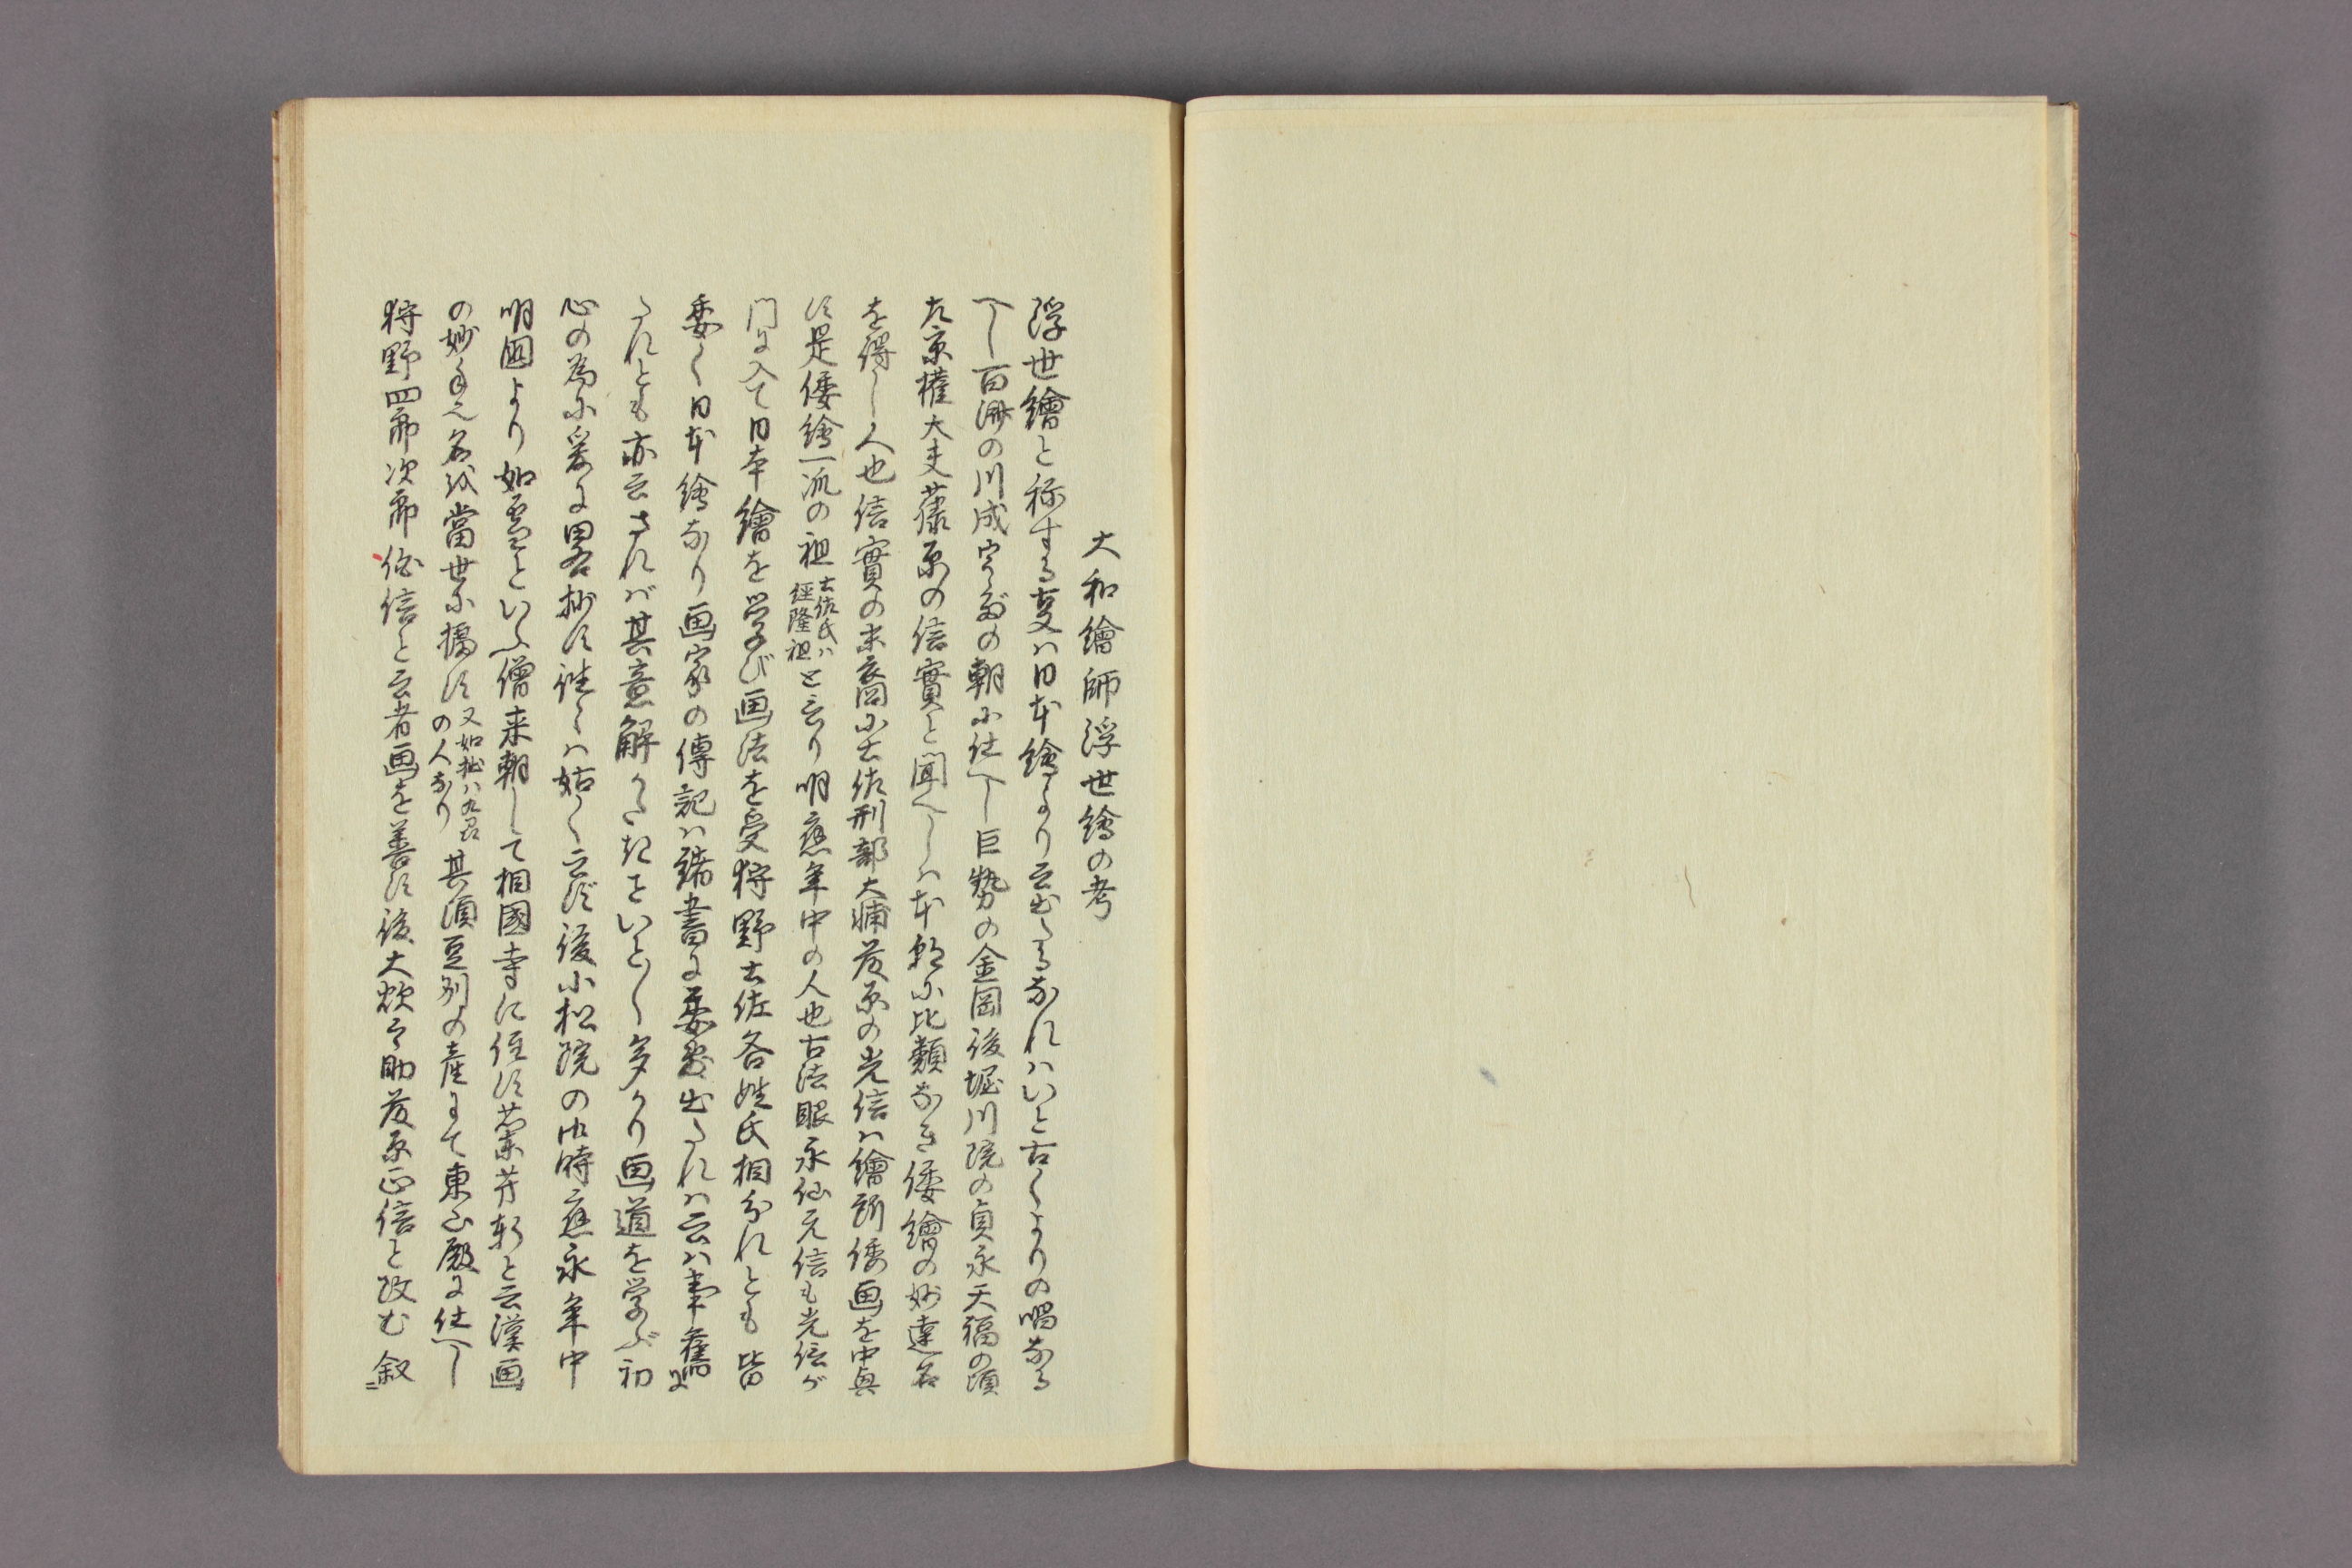 大和繪師浮世繪の考
浮世繪と称する事ハ日本繪より云出たる なれハいと古くよりの唱なる
へし百済の川成宇多の朝に仕へし巨勢の金岡後堀川院の貞永天福の頃
左京權大夫藤原の信實と聞へしハ本朝に比類なき倭繪の妙達名
を得し人也信實の末裔同に土佐刑部大輔藤原の光信ハ繪所倭画を中興
す是倭繪一流の祖
土佐氏ハ
經隆祖
と云り明應年中の人也古法眼永仙元信も光信が
門に入て日本繪を学び画法を受狩野土佐各姓氏相分れとも皆
委く日本繪なり画家の傳記ハ諸書に委敷出たれハ云ハ事舊に
たれとも亦云されバ其意解かたきこといと〱多かり画道を学ぶ初
心の為に爰に畧抄す誰〱ハ姑く云ず後小松院の御時應永年中
明國より如雪といふ僧来朝して相國寺に住す蘭芳軒と云漢画
の妙手元名誠當世に獨す
又如拙ハ九州
の人なり
其頃豆州の産にて東山殿に仕へし
狩野四郎次郎祐信と云者画を善す後大炊之助藤原正信と改む叙